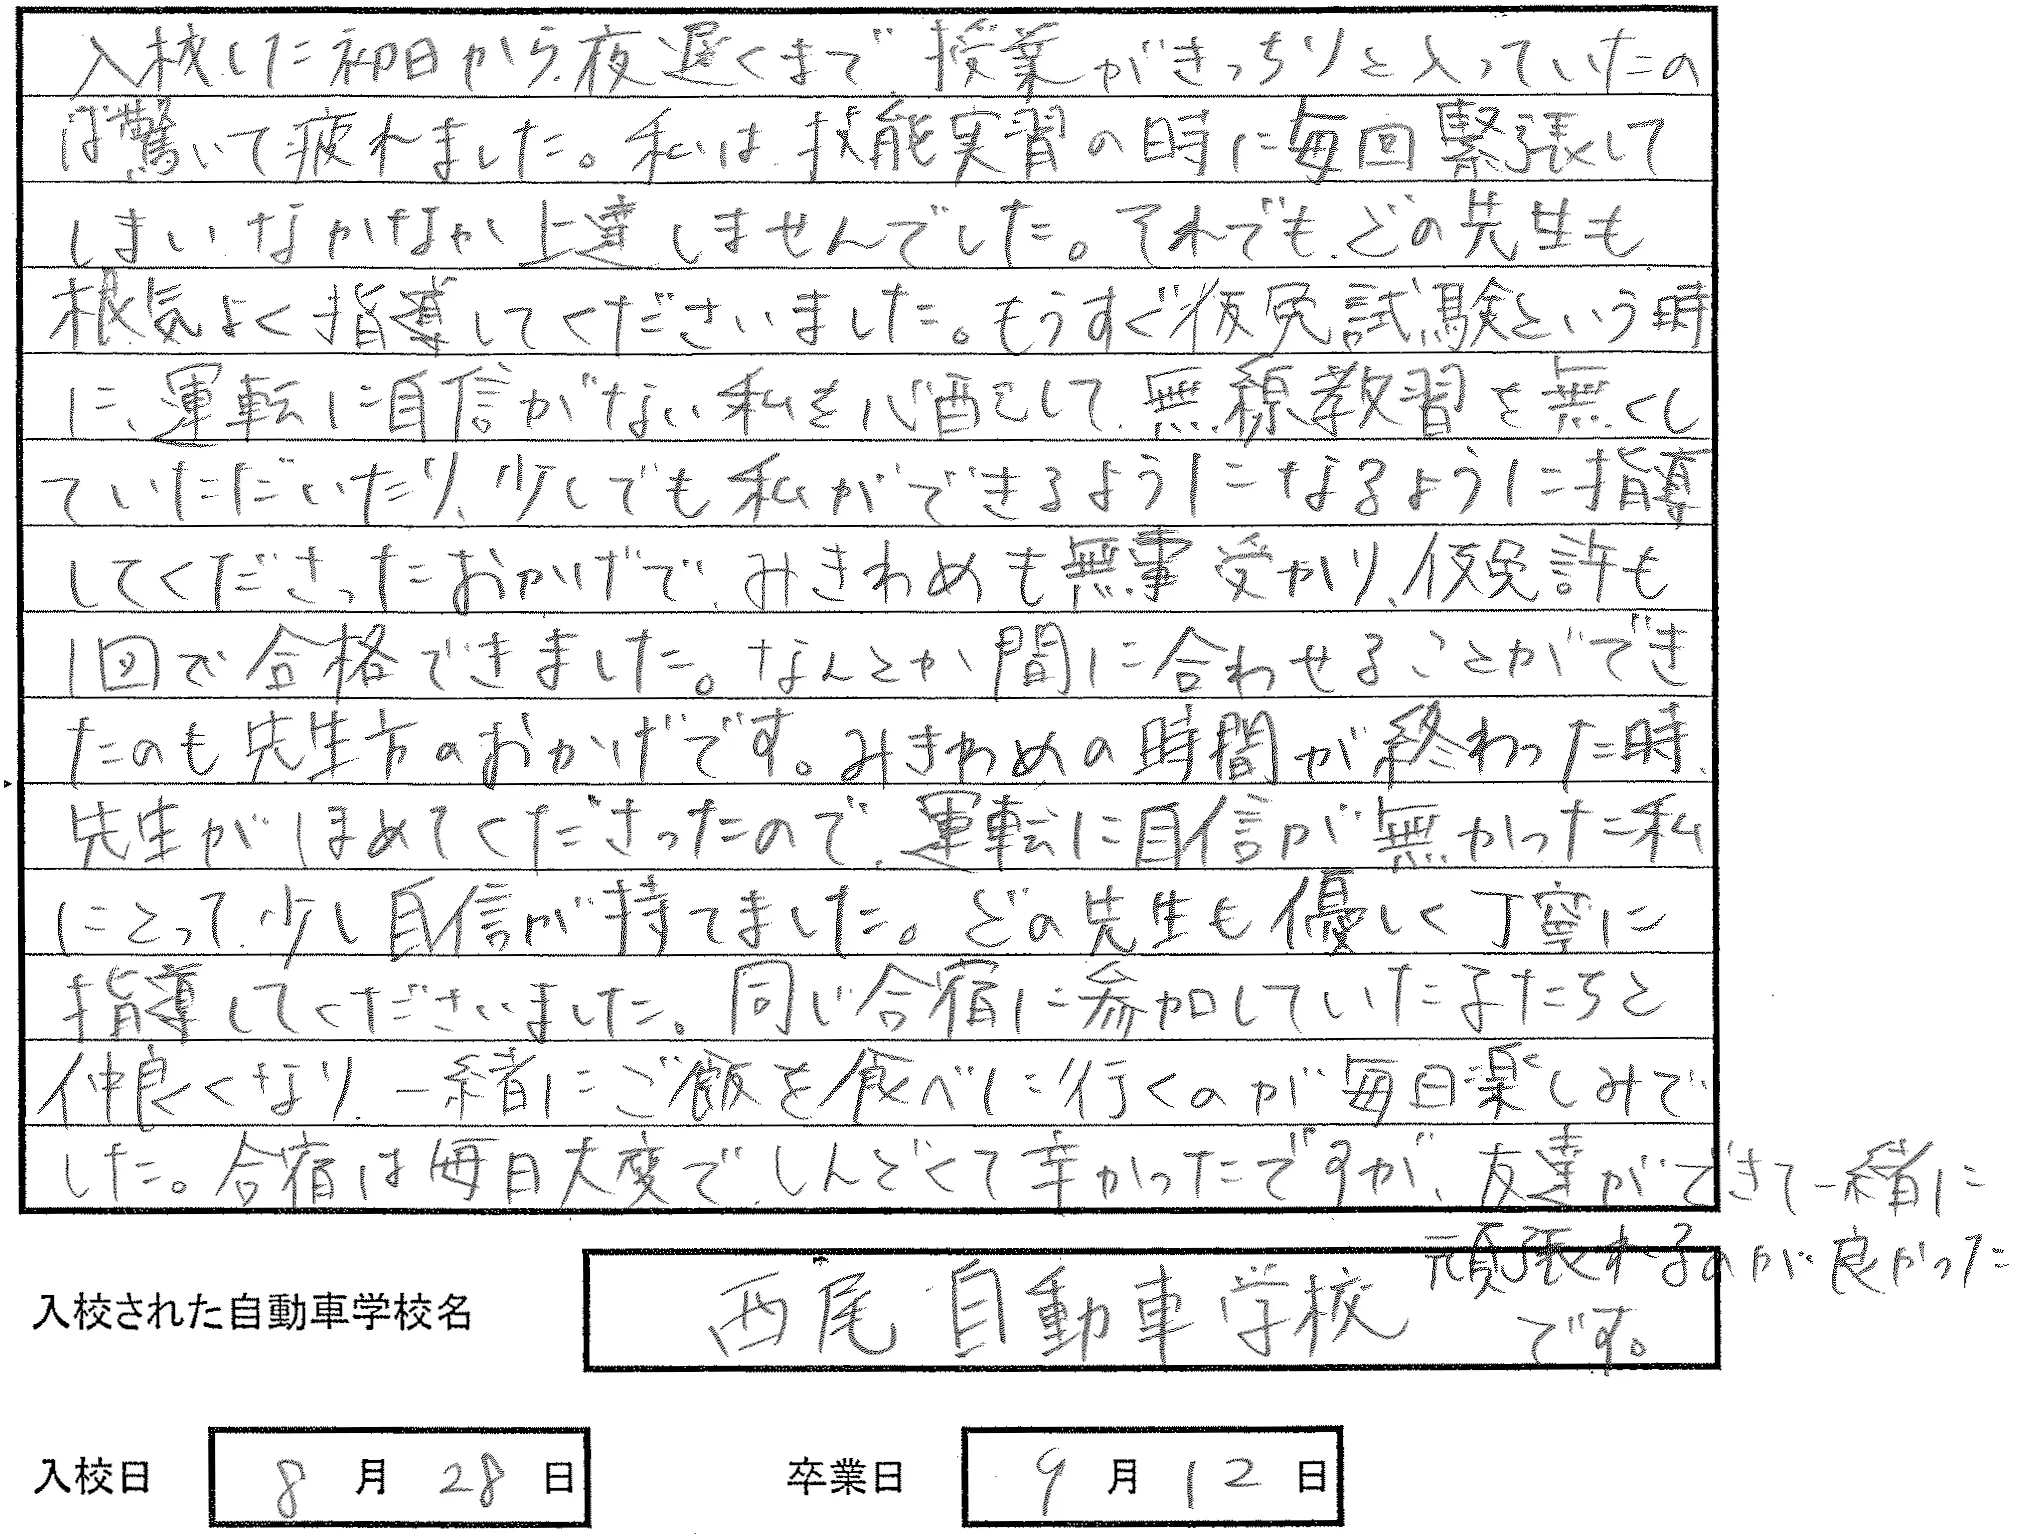 入校した初日から、夜遅くまで授業がきっちりと入っていたの
は驚いて疲れました。私は、技能実習の時に毎回緊張して
しまいなかなか上達しませんでした。それでも、どの先生も
根気よく指導してくださいました。もうすぐ仮免試験という時
に、運転に自信がない私を心配して、無線教習を無くし
ていただいたり、少しでも私ができるようになるように指導
してくださったおかげで、みきわめも無事受かり、仮免許も
1回で合格できました。なんとか間に合わせることができ
たのも先生方のおかげです。みきわめの時間が終わった時、
先生がほめてくださったので、運転に自信が無かった私
にとって、少し自信が持てました。どの先生も優しく丁寧に
指導してくださいました。同じ合宿に参加していた子たちと
仲良くなり、一緒にご飯を食べに行くのが毎日楽しみで
した。合宿は毎日大変で、しんどくて辛かったですが、友達ができて一緒に
頑張れるのが良かった
です。
入校された自動車学校名 西尾自動車学校
入校日 8月28日 卒業日 9月12日